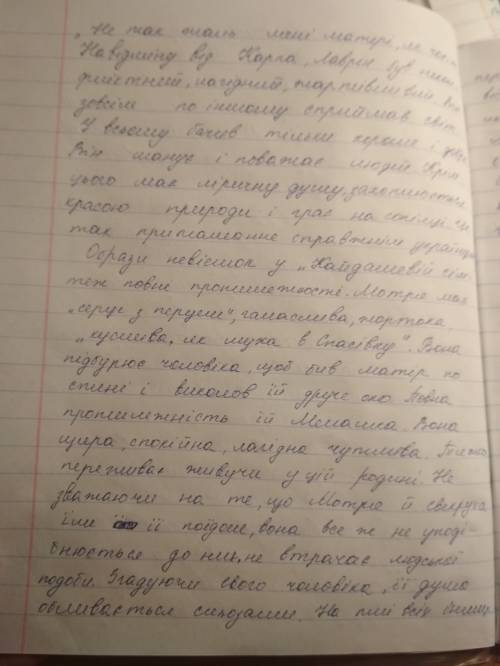 „Не так жаль мені матері, як
На відміну від Карпа, Лаврін був
фліктний, лагідний, жартівливий. Він
зовсім по іншому сприймав світ.
У всьому бачив тільки хороше і
Він шанує і поважає людей. Крім
цього має ліричну душу, захоплюється
красою природи і грає на сопілці, що
так притаманне справжнім українцям
Образи невісток у „Кайдашевій сім'ї"
теж повні протилежності. Мотря має
„серце з перцем", галаслива, моторна,
„куслива, як муха в Спасівку". Вона
підбурює чоловіка, щоб бив матер по
спині і виколов їй друге око. Повна
протилежність їй Мелашка. Вона
щира, спокійна, лагідна чутлива. Тяжко
переживає живучи у цій родині. Не
зважаючи на те, що Мотря й свекруха
їли її поїдом, вона все ж не уподі-
бнюється до них, не втрачає людської
подоби. Згадуючи свого чоловіка, її душа
обливається сльозами. На тлі всіх